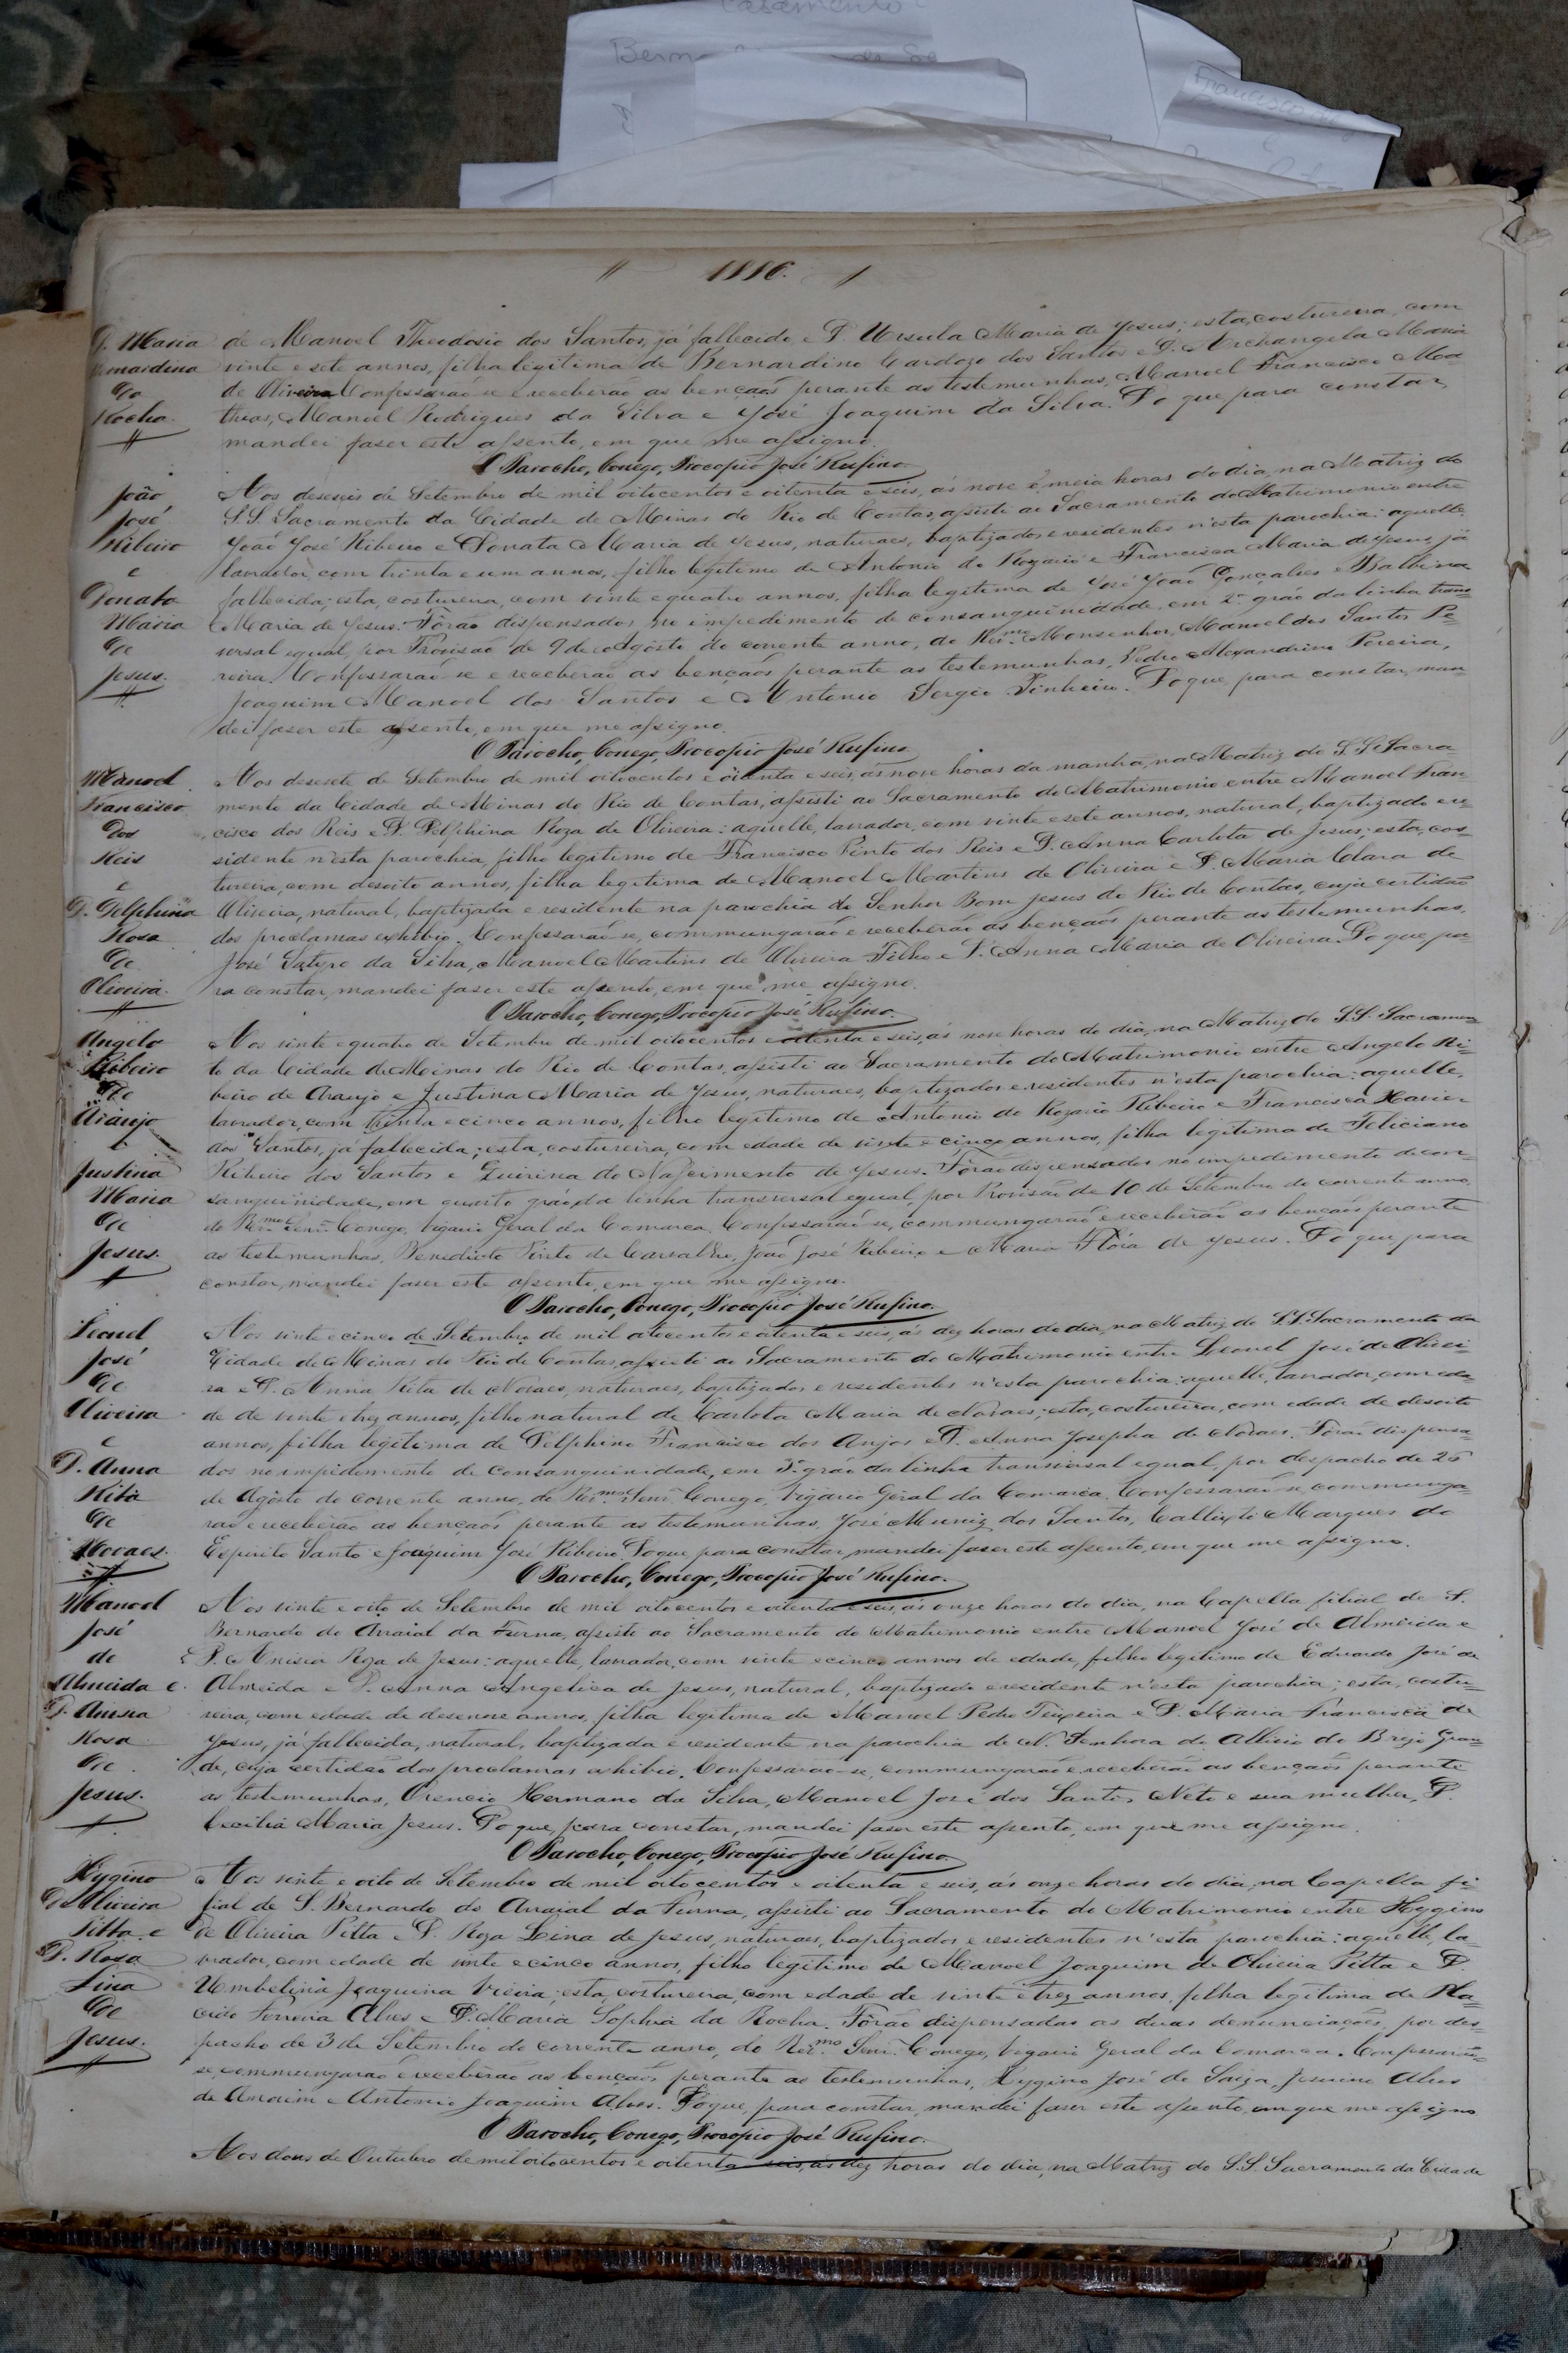 Casamento
1886.
D. Maria de Manoel Theodosio dos Santos, já fallecido e D. Ursula Maria de Jesus; esta, costureira, com
Bernardina vinte e sete annos, filha legitima de Bernardino Cardozo dos Santos e D. Archangela Maria
da de Oliveira. Confessarão-se e receberão as bençãos perante as testemunhas, Manoel Francisco Ma-
Rocha. thias, Manoel Rodrigues da Silva e José Joaquim da Silva. Do que para constar,
mandei faser este assento, em que me assigno.
O Parocho, Conego, Procopio José Rufino.
João Aos deseseis de Setembro de mil oitocentos e oitenta e seis, ás nove e meia horas do dia, na Matriz do
José S.S. Sacramento da Cidade de Minas do Rio de Contas, assisti ao Sacramento do Matrimonio entre
Ribeiro João José Ribeiro e Donata Maria de Jesus, naturaes, baptizados e residentes n'esta parochia: aquelle,
e lavrador, com trinta e um annos, filho legitimo de Antonio do Rozario e Francisca Maria de Jesus, já
Donata fallecida; esta, costureira, com vinte e quatro annos, filha legitima de José João Gonçalves e Balbina
Maria Maria de Jesus. Fôrão dispensados no impedimento de consanguinidade, em 2.º gráo da linha trans-
de versal egual, por Provisão de 9 de Agosto do corrente anno, do Rev.mo Monsenhor, Manoel dos Santos Pe-
Jesus. reira. Confessarão-se e receberão as bençãos perante as testemunhas, Pedro Alexandrino Pereira,
Joaquim Manoel dos Santos e Antonio Sergio Pinheiro. Do que, para constar, man-
dei faser este assento, em que me assigno.
O Parocho, Conego, Procopio José Rufino
Manoel Aos desesete de Setembro de mil oitocentos e oitenta e seis, ás nove horas da manhã, na Matriz do S.S. Sacra-
Francisco mento da Cidade de Minas do Rio de Contas, assisti ao Sacramento do Matrimonio entre Manoel Fran-
dos cisco dos Reis e D. Delphina Roza de Oliveira: aquelle, lavrador, com vinte e sete annos, natural, baptizado e re-
Reis sidente n'esta parochia, filho legitimo de Francisco Pinto dos Reis e D. Anna Carlota de Jesus; esta, cos-
e tureira, com desoito annos, filha legitima de Manoel Martins de Oliveira e D. Maria Clara de
D. Delphina Oliveira, natural, baptizada e residente na parochia do Senhor Bom Jesus do Rio de Contas, cuja certidão
Rosa dos proclamas exhibio. Confessarão-se, commungarão e receberão as bençãos perante as testemunhas,
de José Satyro da Silva, Manoel Martins de Oliveira Filho e D. Anna Maria de Oliveira. Do que, pa-
Oliveira. ra constar, mandei faser este assento, em que me assigno.
O Parocho, Conego, Procopio José Rufino.
Angelo Aos vinte e quatro de Setembro de mil oitocentos e oitenta e seis, ás nove horas do dia, na Matriz do S.S. Sacramen-
Ribeiro to da Cidade de Minas do Rio de Contas, assisti ao Sacramento do Matrimonio entre Angelo Ri-
de beiro de Araujo e Justina Maria de Jesus, naturaes, baptizados e residentes n'esta parochia: aquelle,
Araujo lavrador, com trinta e cinco annos, filho legitimo de Antonio do Rozario Ribeiro e Francisca Xavier
e dos Santos, já fallecida; esta, costureira, com edade de vinte e cinco annos, filha legitima de Feliciano
Justina Ribeiro dos Santos e Quirina do Nascimento de Jesus. Fôrão dispensados no impedimento de con-
Maria sanguinidade, em quarto gráo da linha transversal egual, por Provisão de 10 de Setembro do corrente anno,
de do Rev.mo Senr. Conego, Vigario Geral da Comarca. Confessarão-se, commungarão e receberão as bençãos perante
Jesus. as testemunhas, Benedicto Pinto de Carvalho, João José Ribeiro e Maria Flóra de Jesus. Do que para
constar, mandei faser este assento, em que me assigno.
O Parocho, Conego, Procopio José Rufino.
Leonel Aos vinte e cinco de Setembro de mil oitocentos e oitenta e seis, ás dez horas do dia, na Matriz do S.S. Sacramento da
José Cidade de Minas do Rio de Contas, assisti ao Sacramento do Matrimonio entre Leonel José de Olivei-
de ra e D. Anna Rita de Novaes, naturaes, baptizados e residentes n'esta parochia: aquelle, lavrador, com eda-
Oliveira de de vinte e trez annos, filho natural de Carlota Maria de Novaes; esta, costureira, com edade de desoito
e annos, filha legitima de Delphino Francisco dos Anjos e D. Anna Josepha de Novaes. Fôrão dispensa-
D. Anna dos no impedimento de consanguinidade, em 3.º gráo da linha transversal egual, por despacho de 25
Rita de Agosto do corrente anno, do Rev.mo Senr. Conego, Vigario Geral da Comarca. Confessarão-se, communga-
de rão e receberão as bençãos perante as testemunhas, José Muniz dos Santos, Callixto Marques do
Novaes. Espirito Santo e Joaquim José Ribeiro. Do que para constar, mandei faser este assento, em que me assigno.
O Parocho, Conego, Procopio José Rufino.
Manoel Aos vinte e oito de Setembro de mil oitocentos e oitenta e seis, ás onze horas do dia, na Capella filial de S.
José Bernardo do Arraial da Furna, assisti ao Sacramento do Matrimonio entre Manoel José de Almeida e
de D. Anisia Roza de Jesus: aquelle, lavrador, com vinte e cinco annos de edade, filho legitimo de Eduardo José de
Almeida e Almeida e D. Anna Angelica de Jesus, natural, baptizado e residente n'esta parochia; esta, costu-
D. Anisia reira, com edade de desenove annos, filha legitima de Manoel Pedro Teixeira e D. Maria Francisca de
Rosa Jesus, já fallecida, natural, baptizada e residente na parochia de N. Senhora do Allivio do Brejo Gran-
de de, cuja certidão dos proclamas exhibio. Confessarão-se, commungarão e receberão as bençãos perante
Jesus. as testemunhas, Orencio Hermano da Silva, Manoel José dos Santos Neto e sua mulher, D.
Cecilia Maria Jesus. Do que, para constar, mandei faser este assento, em que me assigno.
O Parocho, Conego, Procopio José Rufino
Hygino Aos vinte e oito de Setembro de mil oitocentos e oitenta e seis, ás onze horas do dia, na Capella fi-
de Oliveira lial de S. Bernardo do Arraial da Furna, assisti ao Sacramento do Matrimonio entre Hygino
Pitta e de Oliveira Pitta e D. Roza Lina de Jesus, naturaes, baptizados e residentes n'esta parochia: aquelle, la-
D. Rosa vrador, com edade de vinte e cinco annos, filho legitimo de Manoel Joaquim de Oliveira Pitta e D.
Lina Umbelina Joaquina Vieira; esta, costureira, com edade de vinte e trez annos, filha legitima de Pla-
de cido Ferreira Alves e D. Maria Sophia da Rocha. Fôrão dispensadas as duas denunciações, por des-
Jesus. pacho de 3 de Setembro do corrente anno, do Rev.mo Senr. Conego, Vigario Geral da Comarca. Confessarão-
se, commungarão e receberão as bençãos perante as testemunhas, Hygino José de Souza, Jesuino Alves
de Amorim e Antonio Joaquim Alves. Do que, para constar, mandei faser este assento, em que me assigno
O Parocho, Conego, Procopio José Rufino.
Aos dous de Outubro de mil oitocentos e oitenta e seis, ás dez horas do dia, na Matriz do S.S. Sacramento da Cidade